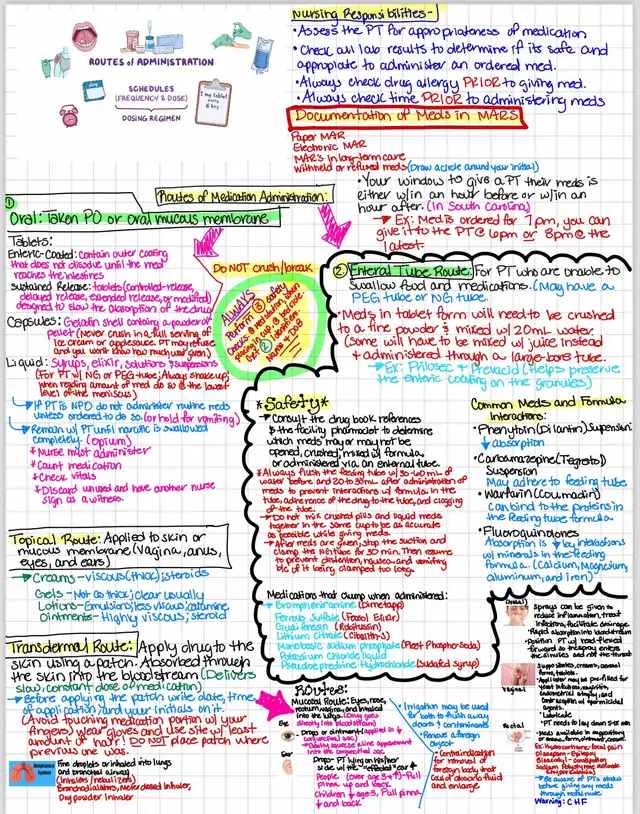 ROUTES of ADMINISTRATION
SCHEDULES
(FREQUENCY & DOSE)
DOSING REGIMEN
Nursing Responsibilities-
• Assess the PT for appropriateness of medication
• Check all lab results to determine if its safe and
appropiate to administer an ordered med.
• Always check drug allergy PRIOR to giving med.
• Always check time PRIOR to administering meds
Documentation of Meds in MARS
Paper MAR
Electronic MAR
MAR's in long-term care
withheld or refused meds (Draw a circle around your initial)
• Your window to give a PT their meds is
either w/in an hour before or w/in an
hour after. (In South Carolina)
→ Ex: Med is ordered for 7pm, you can
give it to the PT @ 6pm or 8pm @ the
latest.
Routes of Medication Administration:
1
Oral: Taken PO or oral mucous membrane
Tablets:
Enteric-Coated: contain outer coating
that does not dissolve until the med
reaches the intestines
Sustained Release: tablets (controlled-release,
delayed release, extended release, or modified)
designed to slow the absorption of the drug
DO NOT crush/break
Capsules: Gelatin shell containing a powder or
pellet (Never crush in a full serving of
ice cream or applesauce. PT may refuse
and you won't know how much was given.)
Liquid: Syrups, elixir, solutions & suspensions
(For PT w/ NG or PEG-tube, Always shake up,
when reading amount of med do so @ the lowest
level of the meniscus)
→ If PT is NPO do not administer routine meds
unless ordered to do so (or hold for vomiting)
→ Remain w/ PT until narcotic is swallowed
completely. (opium)
• Nurse must administer
• Count medication
• Check vitals
• Discard unused and have another nurse
sign as a witness.
ALWAYS
Perform 3 safety
Checks
2
2 Enteral Tube Route: For PT who are unable to
swallow food and medications. (May have a
PEG tube or NG tube.
• Meds in tablet form will need to be crushed
to a fine powder & mixed w/ 20mL water.
(some will have to be mixed w/ juice instead
& administered through a large-bore tube.
→ Ex: Prilosec & Prevacid (Helps preserve
the enteric coating on the granules)
*Safety*
→ Consult the drug book references
& the facility pharmacist to determine
which meds may or may not be
opened, crushed, mixed w/ formula,
or administered via an enteral tube.
• Always flush the feeding tube w/ 30-60mL of
water before and 20 to 30mL after administration of
meds to prevent interactions w/ formula in the
tube, adherence of the drug to the tube, and clogging
of the tube.
→ Do not mix crushed pills and liquid meds
together in the same cup to be as accurate
as feasible while giving meds.
• After meds are given, stop the suction and
clamp the NG tube for 30 min. Then resume
to prevent distention, nausea and vomiting
b/c of it being clamped too long.
Medications that clump when administered:
→ Brompheniramine (Dimetapp)
Ferrous Sulfate (Feosol Elixir)
Guaifenesin (Robitussin)
Lithium Citrate (Cibalith-S)
Monobasic sodium phosphate (Fleet Phospho-Soda)
Potassium Chloride liquid
Pseudoephedrine Hydrochloride (Sudafed syrup)
Common Meds and Formula
Interactions:
• Phenytoin (Dilantin) Suspension
↓ absorption
• Carbamazepine (Tegretol)
Suspension
May adhere to feeding tube
• Warfarin (Coumadin)
Can bind to the proteins in
the feeding tube formula
• Fluoroquinolones
Absorption is ↓ by interactions
w/ minerals in the feeding
formula. (Calcium, Magnesium,
aluminum, and Iron)
Topical Route: Applied to skin or
mucous membrane (Vagina, anus,
eyes, and ears)
→ Creams - viscous (thick); steroids
Gels - Not as thick; clear usually
Lotions - Emulsion; less viscous; calamine
Ointments - Highly viscous; steroid
Transdermal Route: Apply drug to the
skin using a patch. Absorbed through
the skin into the bloodstream (Delivers
slow, constant dose of medication)
→ Before applying the patch write date, time
of application and your initials on it.
(Avoid touching medication portion w/ your
fingers) Wear gloves and use site w/ least
amount of hair! DO NOT place patch where
previous one was.
Respiratory System
Fine droplets or inhaled into
lungs and bronchial airway
(Inhalers/nebulizers)
Bronchodilators, Meter dosed inhaler,
Dry powder inhaler
Routes:
Mucosal Route: Eyes, nose,
rectum, vagina, and inhaled
into the lungs. (Drug goes
directly into bloodstream)
Eye
→ Drops or ointment (applied in ↓
conjunctival sac)
Ear
Drops - PT lying on his/her
side w/ the "affected" ear ↑
People (over age 3+) - Pull
pinna up and back
Children ↓ age 3, Pull pinna
↓ and back
Irrigation may be used
for both to flush away
debris & contaminants
• Remove a foreign
object
Contraindication
for removal of
foreign body that
can absorb fluid
and enlarge
(Nasal)
Sprays can be given to
reduce inflammation, treat
infections, facilitate drainage.
• Rapid absorption into bloodstream
• Position PT w/ head flexed
forward so the spray enters
the sinuses and not the throat
Vaginal
Suppositories, creams, aerosol
foams, tablets.
• Applicator may be pre-filled for
• Lubricate
• PT needs to lay down 5-15 min
Rectal
Ex: Hydrocortisone-focal pain
Diazepam - Epilepsy
Bisacodyl - constipation
Sodium Polystyrene sulfonate
(Hyperkalemia)
• Be aware of PTs status
before giving any meds
through rectal route
Warning: CHF